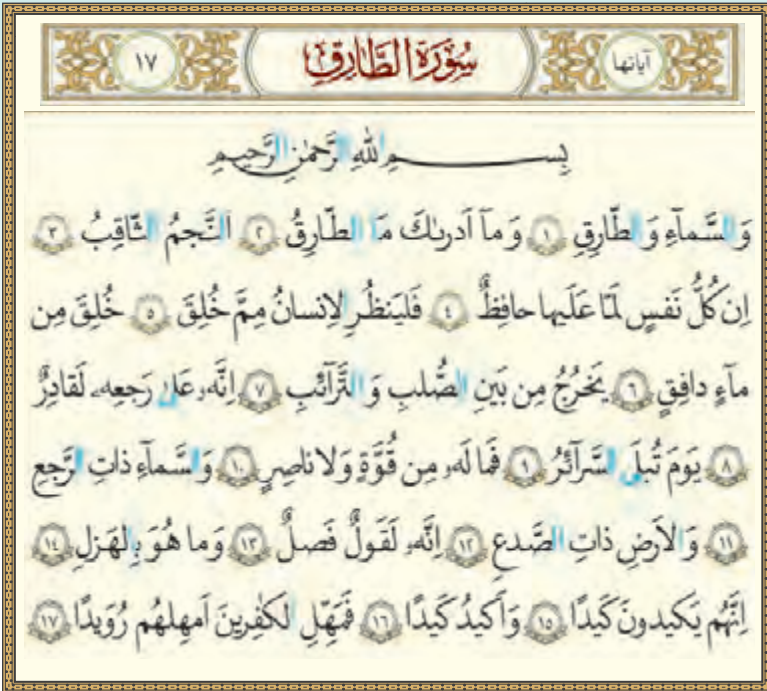 آياتها سُورَةُ الطَّارِقِ ١٧
بِسـمِ اللّٰهِ الرَّحمٰنِ الرَّحيمِ
وَ السَّماءِ وَ الطّارِقِ ١ وَ مآ اَدرىٰكَ مَا الطّارِقُ ٢ اَلنَّجمُ الثّاقِبُ ٣
اِن كُلُّ نَفسٍ لَمّا عَلَيها حافِظٌ ٤ فَليَنظُرِ الاِنسانُ مِمَّ خُلِقَ ٥ خُلِقَ مِن
مآءٍ دافِقٍ ٦ يَخرُجُ مِن بَينِ الصُّلبِ وَ التَّرآئِبِ ٧ اِنَّهُۥ عَلىٰ رَجعِهِۦ لَقادِرٌ
٨ يَومَ تُبلَى السَّرآئِرُ ٩ فَما لَهُۥ مِن قُوَّةٍ وَ لا ناصِرٍ ١٠ وَ السَّمآءِ ذاتِ الرَّجعِ
١١ وَ الاَرضِ ذاتِ الصَّدعِ ١٢ اِنَّهُۥ لَقَولٌ فَصلٌ ١٣ وَ ما هُوَ بِالهَزلِ ١٤
اِنَّهُم يَكيدونَ كَيدًا ١٥ وَ اَكيدُ كَيدًا ١٦ فَمَهِّلِ الكٰفِرينَ اَمهِلهُم رُوَيدًا ١٧